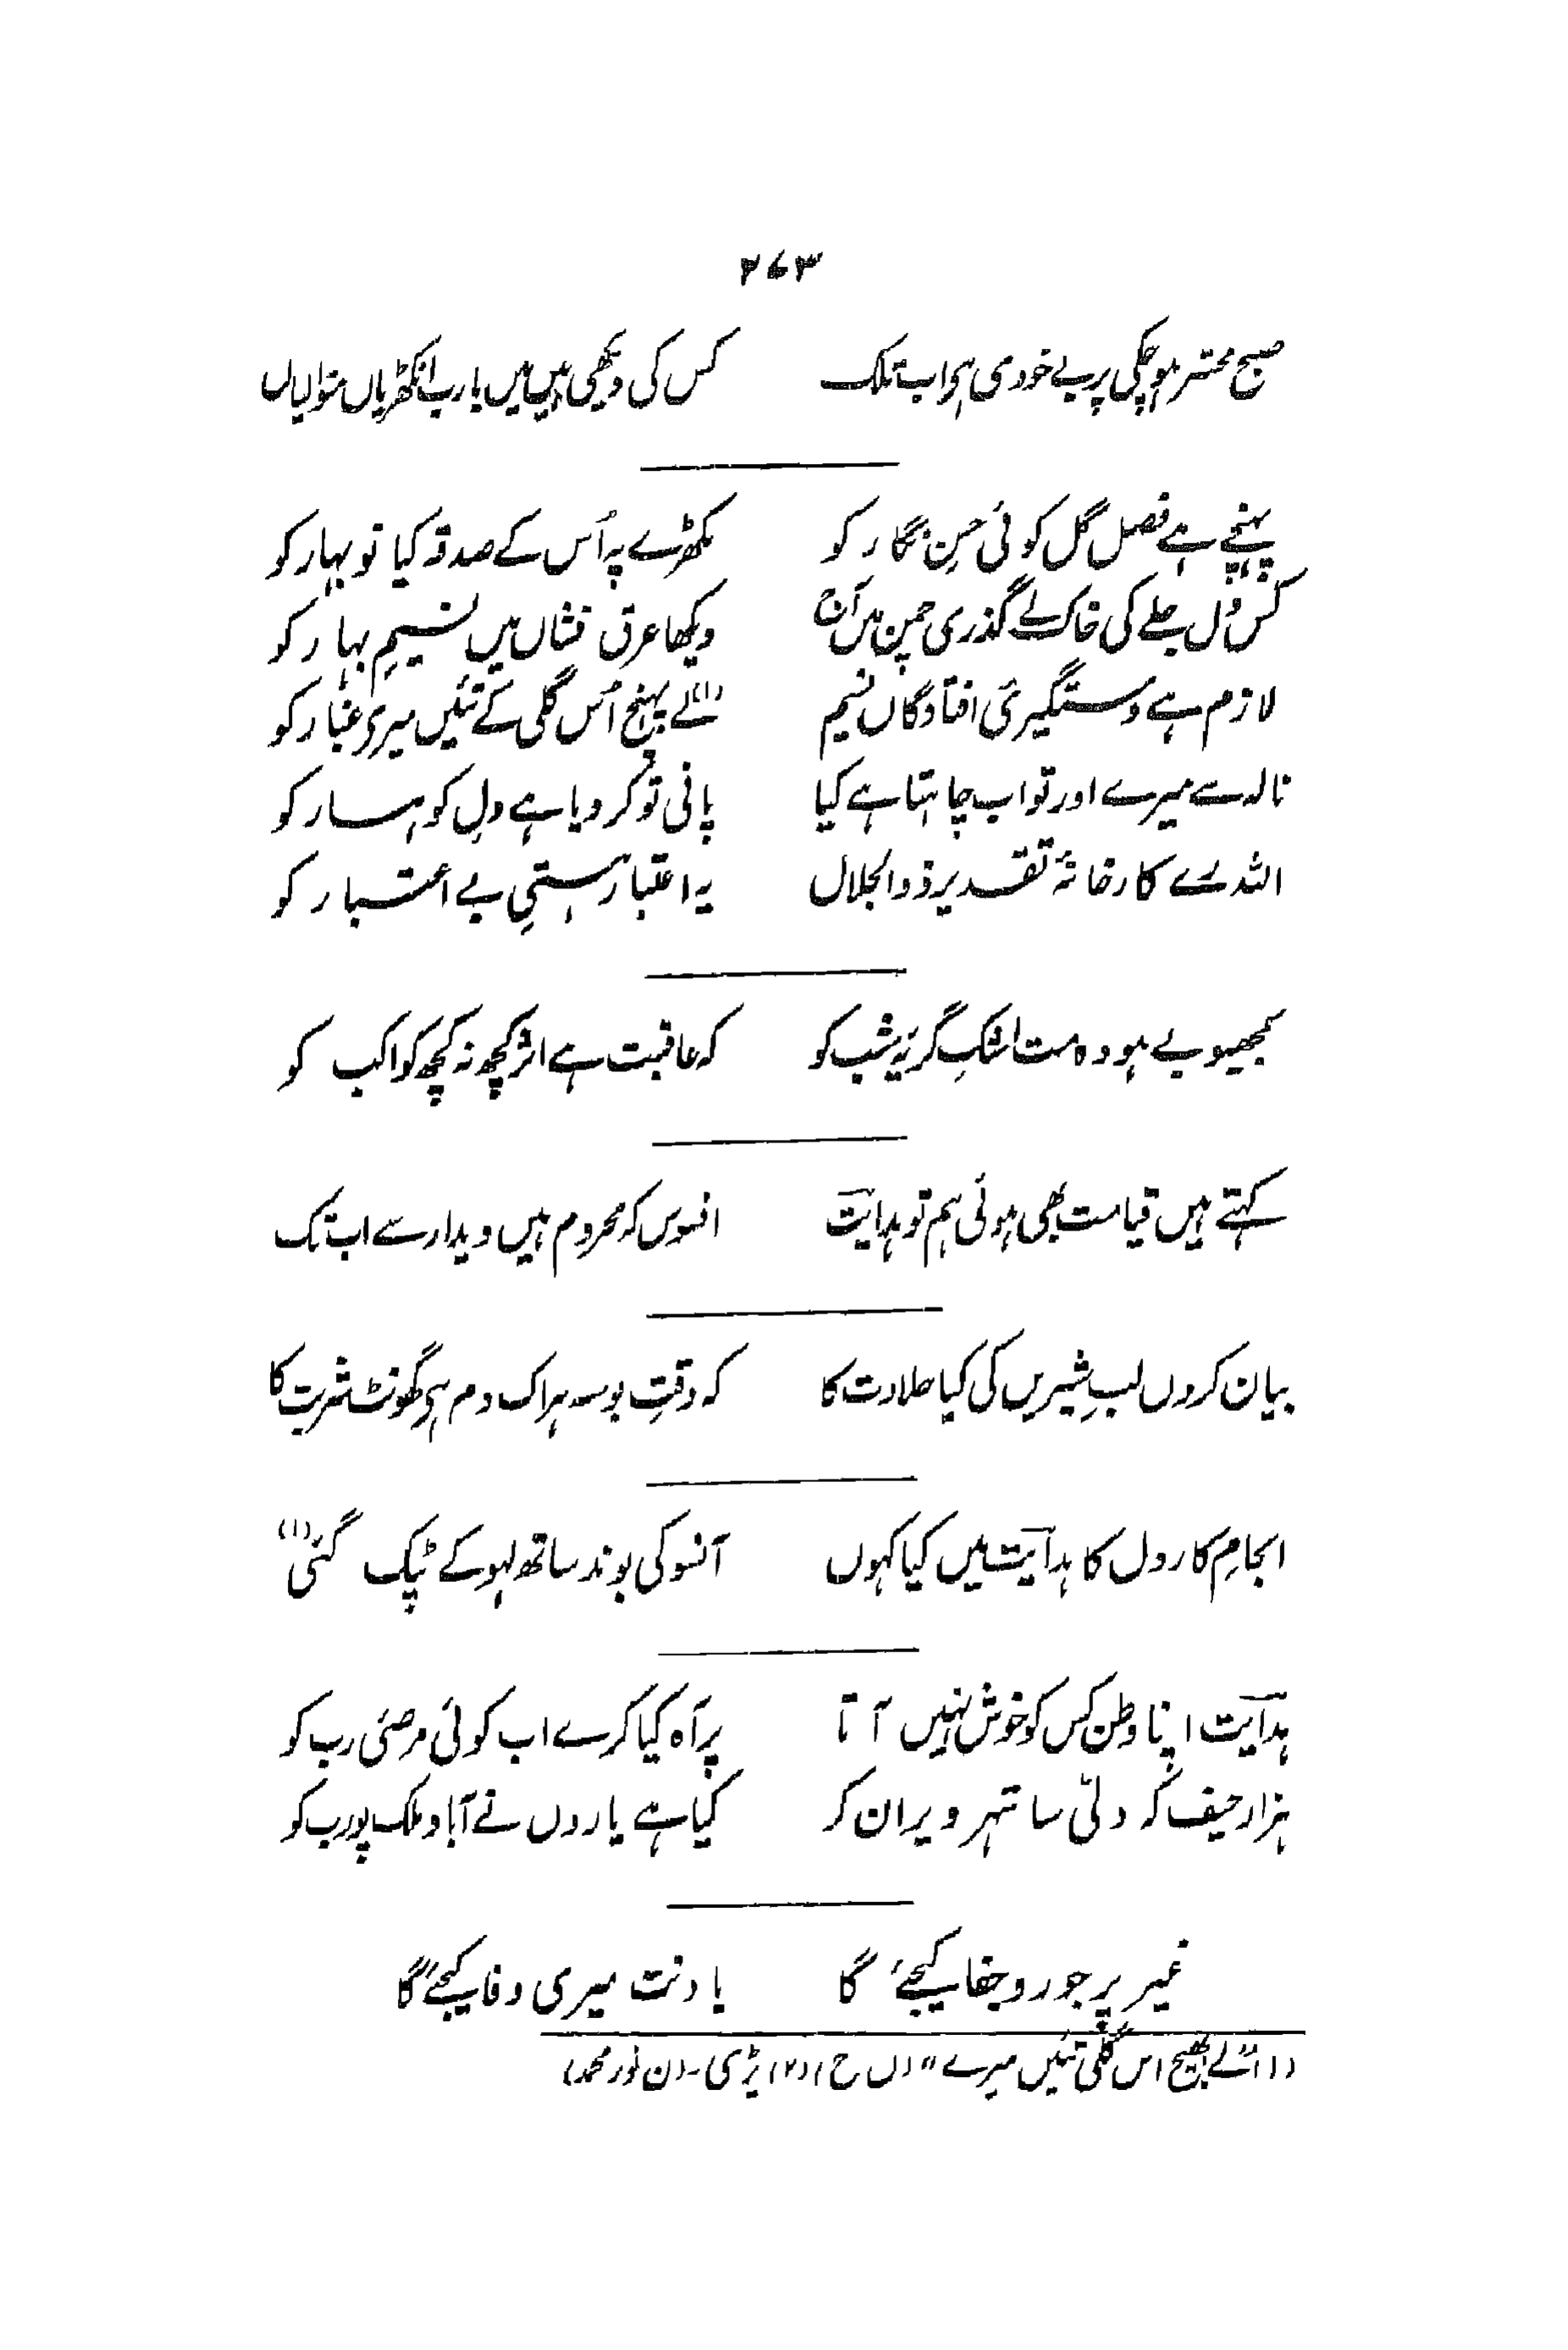 ۲۷۳
صبح محشر ہو چکی پر بے خودی ہی اب تلک    کس کی دیکھی ہیں میں یارب انکھڑیاں متوالیاں
پہنچے ہے فصل گل کوئی حسنِ نگار کو    مکھڑے پہ اُس کے صدقہ کیا نو بہار کو
کس دل جلے کی خاک سے گذری چمن میں آج    دیکھا عرق فشاں میں نسیمِ بہار کو
لازم ہے دستگیریٔ افتادگاں نسیم    لے پہنچ اُس گلی کے تئیں میری غبار کو (۱)
نالہ سے میرے اور تو اب چاہتا ہے کیا    پانی تو کر دیا ہے دلِ کوہسار کو
اللہ رے کارخانۂ تقدیر ذوالجلال    یہ اعتبار ہستیِ بے اعتبار کو
سمجھیو بے ہودہ مت اشکِ گریۂ شب کو    کہ عاقبت ہے اثر کچھ نہ کچھ کواکب کو
کہتے ہیں قیامت بھی ہوئی ہم تو ہدایت    افسوس کہ محروم ہیں دیدار سے اب تک
بیان کروں لبِ شیریں کی کیا حلاوت کا    کہ وقتِ بوسہ ہر اک دم ہی گھونٹ شربت کا
انجامِ کار دل کا ہدایت میں کیا کہوں    آنسو کی بوند ساتھ لہو کے ٹپک گئی (۱)
ہدایت اپنا وطن کس کو خوش نہیں آتا    پر آہ کیا کرے اب کوئی مرضی رب کو
ہزار حیف کہ دلّی سا شہر ویران کر    کیا ہے یاروں نے آباد ملک پورب کو
غیر پر جور و جفا کیجئے گا    یاد نت میری وفا کیجئے گا
(۱) "لے بھیج اس گلی تئیں میرے" (ل ح) (۲) پڑی۔ (ن نور محمد)